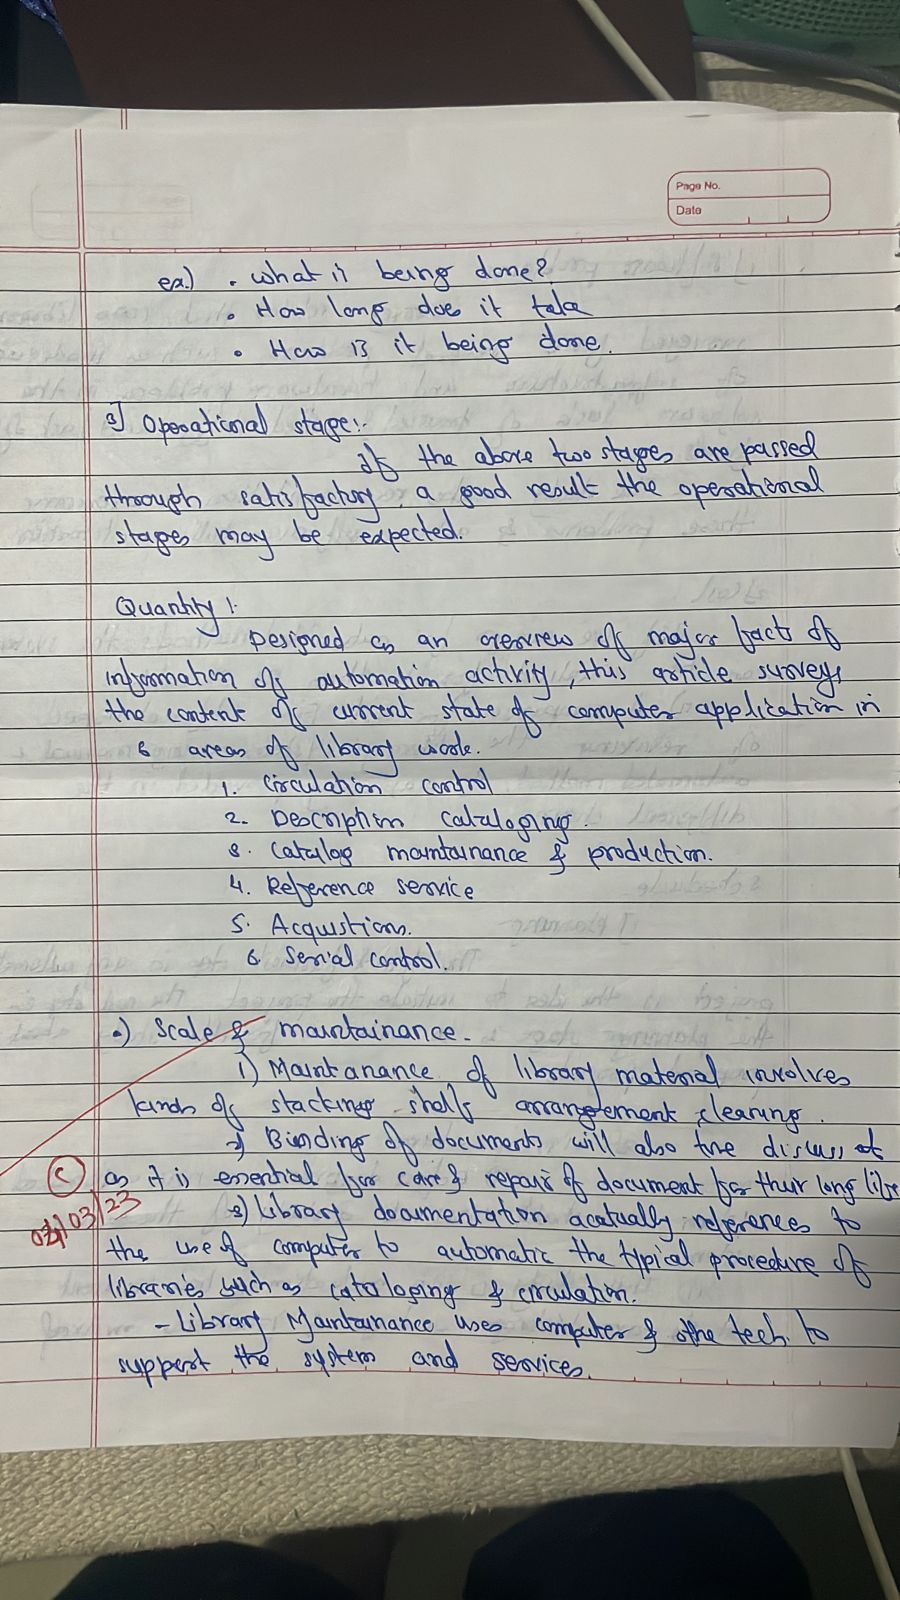 Page No.
Date
ex.) . What is being done?
. How long does it take
. How is it being done.
3] Operational stage:-
If the above two stages are passed
through satisfactory, a good result the operational
stages may be expected.
Quantity :-
Designed as an overview of major facts of
information of automation activity, this article surveys
the content of current state of computer application in
6 areas of library work.
1. Circulation control
2. Description cataloging.
3. Catalog maintainance & production.
4. Reference service
5. Acquistion.
6. Serial control.
.) Scale & maintainance.
1) Maintanance of library material involves
kinds of stacking shelf arrangement cleaning.
2) Binding of documents will also the discuss
as it is essential for care & repair of document for their long life
C
03/23
3) Library documentation acatually references to
the use of computer to automatic the typical procedure of
libraries such as cataloging & circulation.
- Library Maintainance uses computer & othe tech. to
support the system and services.